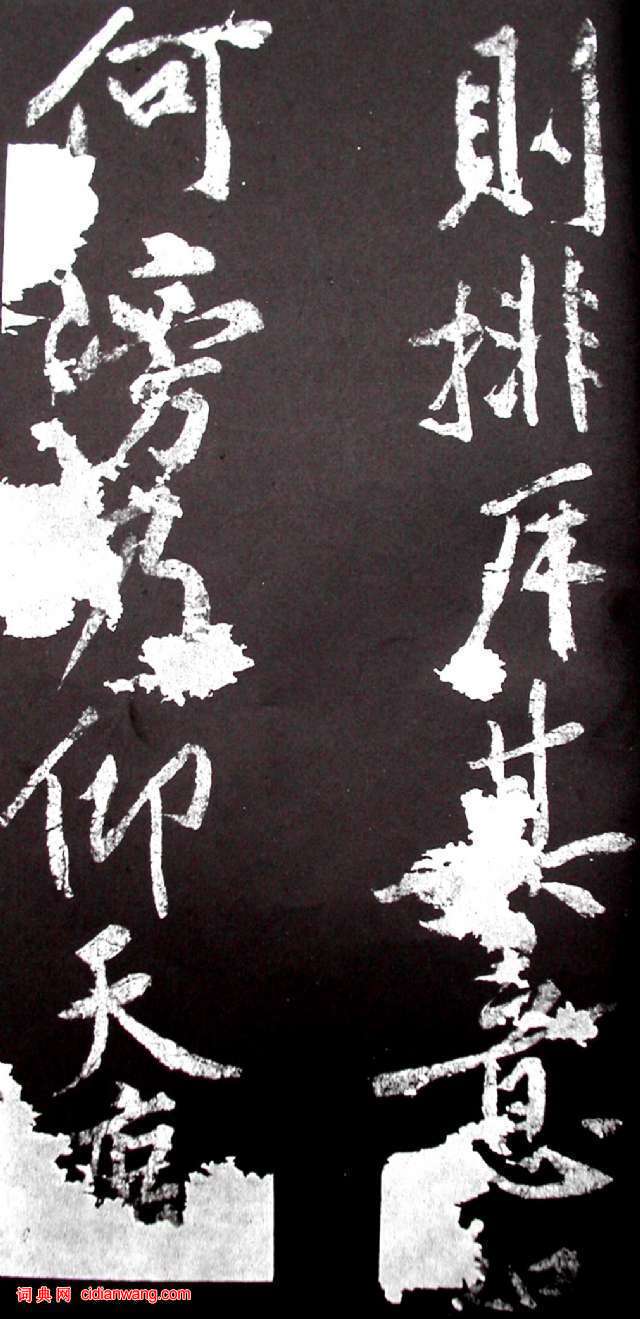 則排斥其意
何謗仰天
词典网 cidianwang.com